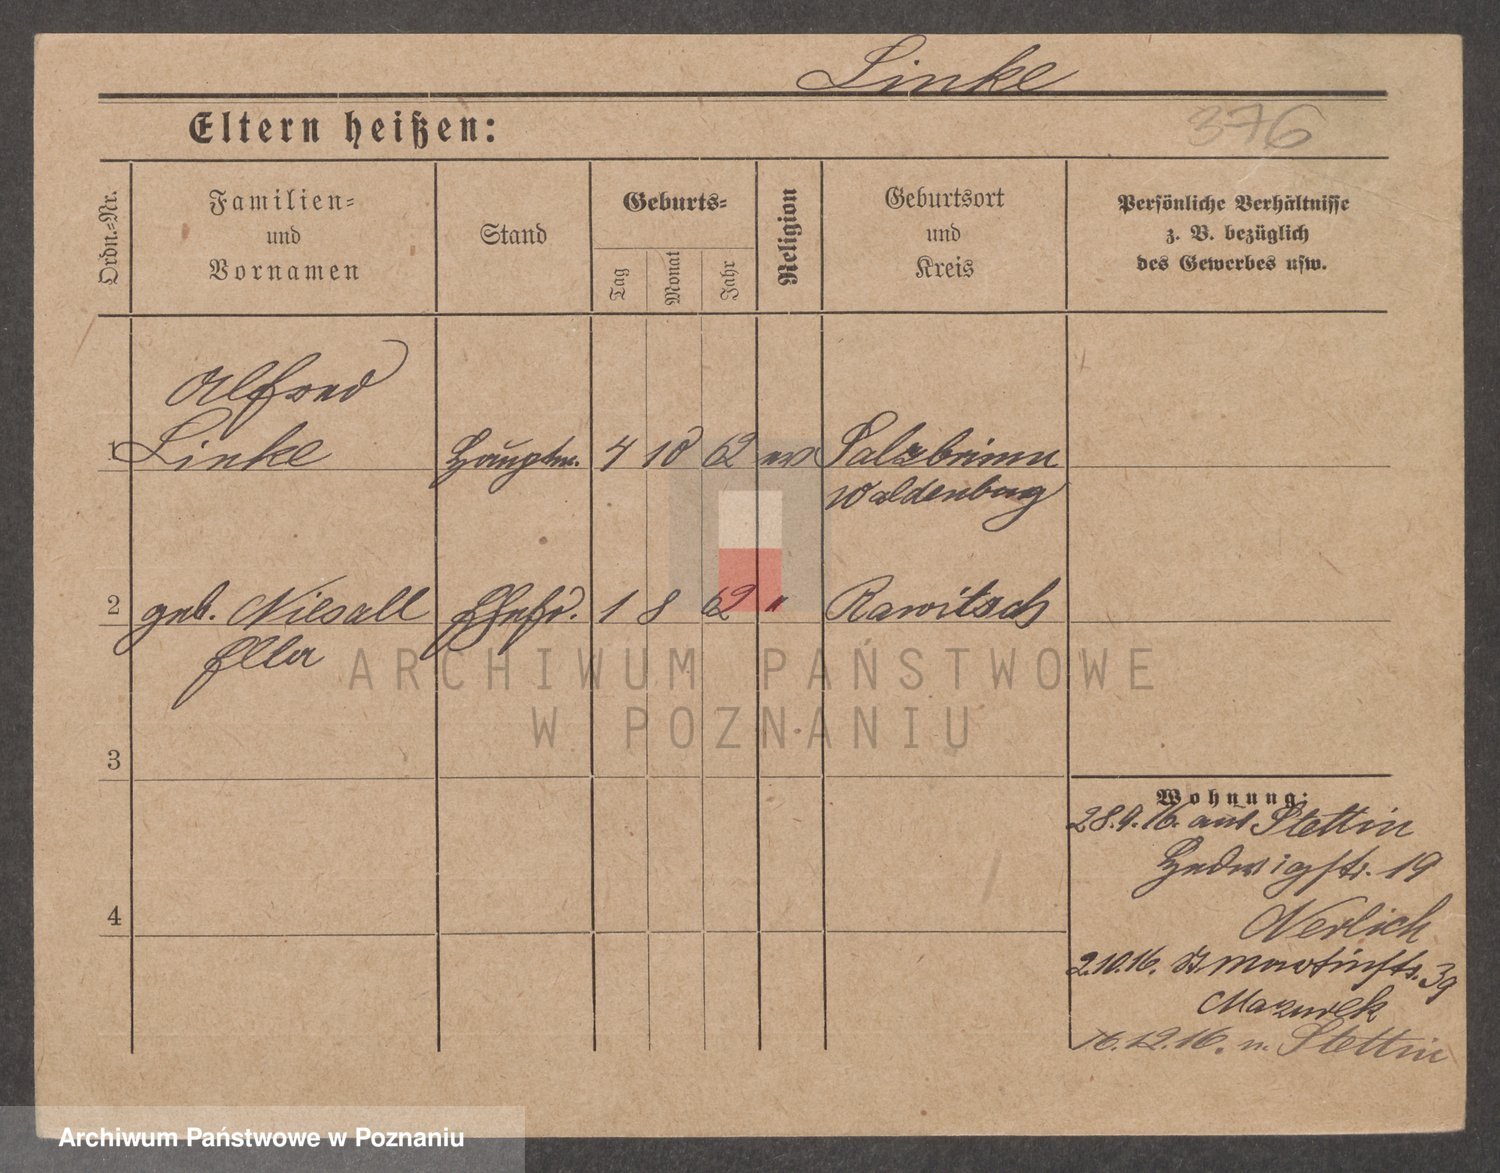 Linke
Eltern heißen:
376
Ordn.-Nr.
Familien-
und
Vornamen
Stand
Geburts-
Tag
Monat
Jahr
Religion
Geburtsort
und
Kreis
Persönliche Verhältnisse
z. B. bezüglich
des Gewerbes usw.
Alfred
1 Linke Hauptm. 4 10 62 ev Salzbrunn
Waldenburg
2 geb. Ehefr. 1 8 62 " Rawitsch
Ella
3
4
Wohnung:
28.9.16. aus Stettin
Hedwigstr. 19
Nerlich
2.10.16. Martinstr. 39
Mazurek
16.12.16. n. Stettin
ARCHIWUM PAŃSTWOWE
W POZNANIU
Archiwum Państwowe w Poznaniu